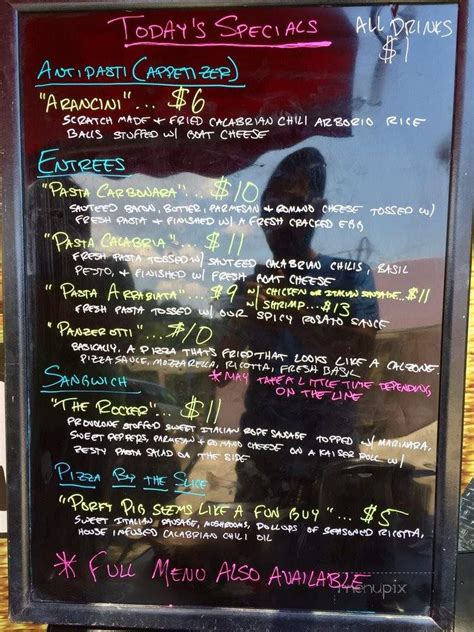 TODAY'S SPECIALS
ALL DRINKS
$1
ANTIPASTI (APPETIZER)
"ARANCINI"... $6
SCRATCH MADE & FRIED CALABRIAN CHILI ARBORIO RICE
BALLS STUFFED W/ GOAT CHEESE
ENTREES
"PASTA CARBONARA"... $10
SAUTEED BACON, BUTTER, PARMESAN & ROMANO CHEESE TOSSED W/
FRESH PASTA & FINISHED W/ A FRESH CRACKED EGG
"PASTA CALABRIA"... $11
FRESH PASTA TOSSED W/ SAUTEED CALABRIAN CHILIS, BASIL
PESTO, & FINISHED W/ FRESH GOAT CHEESE
"PASTA ARRABIATA"... $9 W/ CHICKEN OR ITALIAN SAUSAGE...$11
W/ SHRIMP... $13
FRESH PASTA TOSSED W/ OUR SPICY ROSATO SAUCE
"PANZEROTTI"... $10
BASICALLY, A PIZZA THAT'S FRIED THAT LOOKS LIKE A CALZONE
PIZZA SAUCE, MOZZARELLA, RICOTTA, FRESH BASIL
* MAY TAKE A LITTLE TIME DEPENDING
ON THE LINE
SANGWICH
"THE ROCKER"... $11
PROVOLONE STUFFED SWEET ITALIAN ROPE SAUSAGE TOPPED W/ MARINARA,
SWEET PEPPERS, PARMESAN & ROMANO CHEESE ON A KAISER ROLL W/
ZESTY PASTA SALAD ON THE SIDE
PIZZA BY THE SLICE
"PORKY PIG SEEMS LIKE A FUN GUY"... $5
SWEET ITALIAN SAUSAGE, MUSHROOMS, DOLLOPS OF SEASONED RICOTTA,
HOUSE INFUSED CALABRIAN CHILI OIL
* FULL MENU ALSO AVAILABLE
menupix